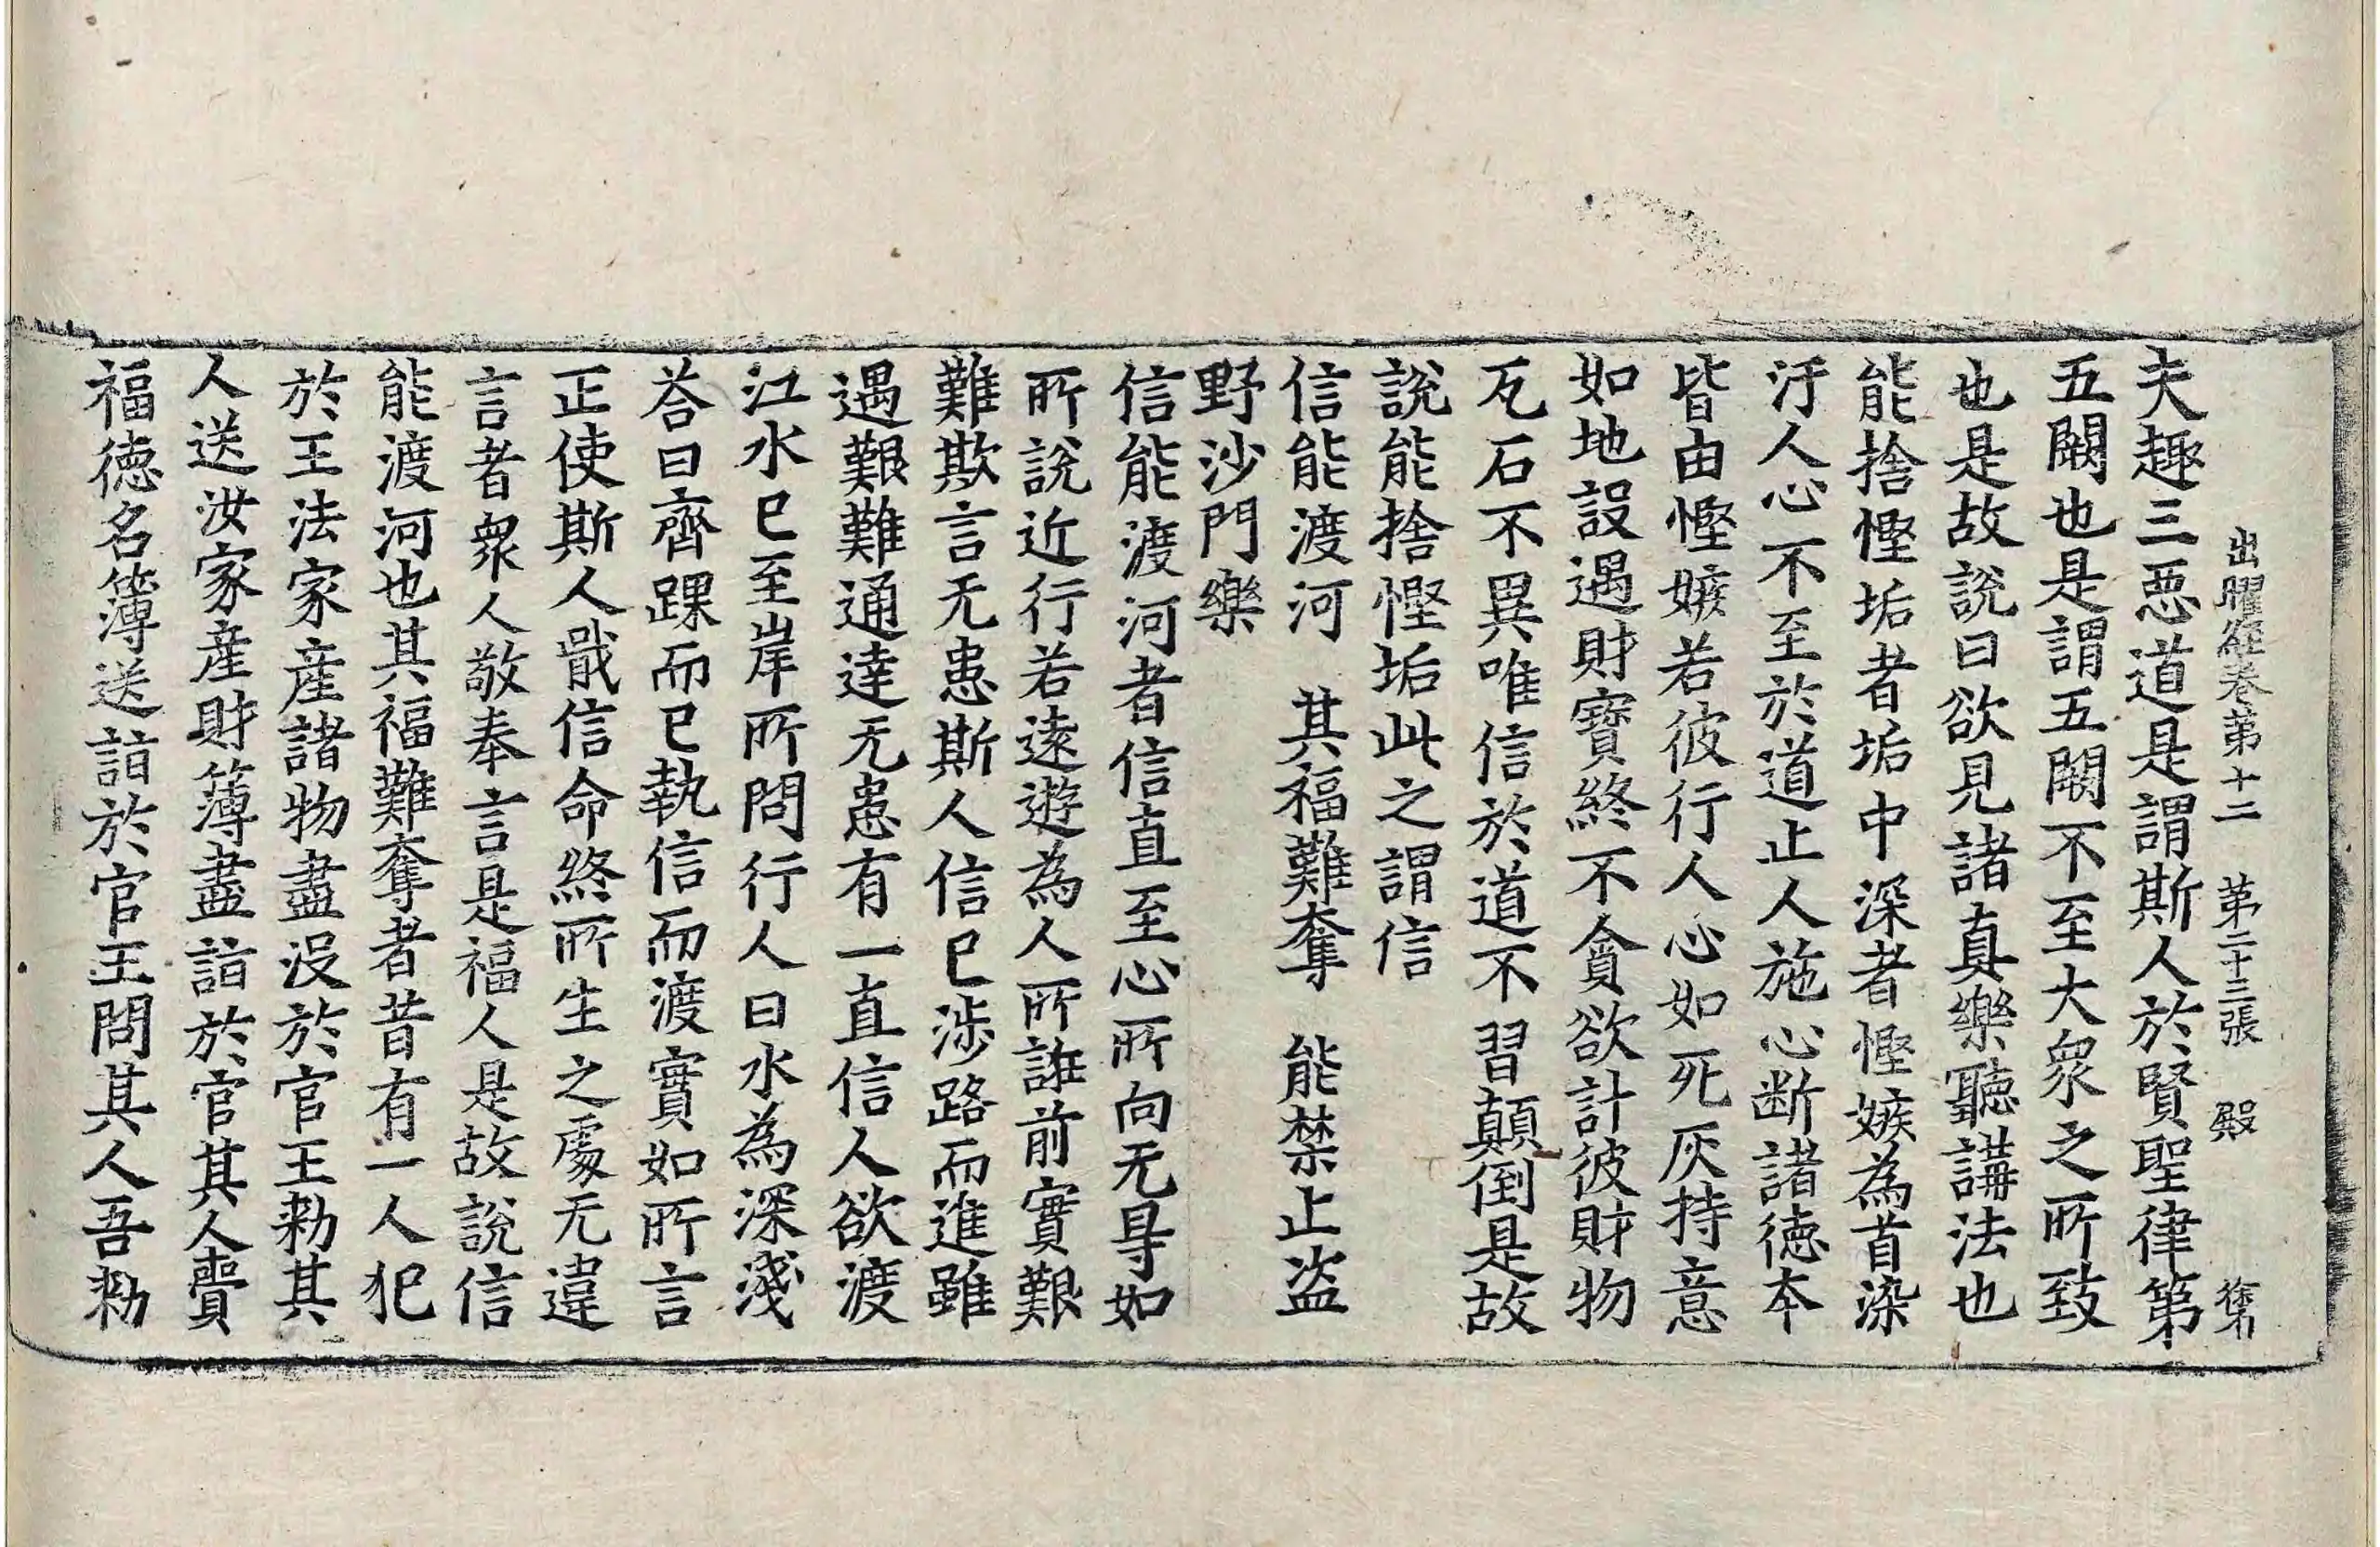 出曜經卷第十二　第二十三張　殿
夫趣三惡道是謂斯人於賢聖律第
五闕也是謂五闕不至大衆之所致
也是故說曰欲見諸真樂聽講法也
能捨慳垢者垢中深者慳嫉為首染
汙人心不至於道止人施心断諸德本
皆由慳嫉若彼行人心如死灰持意
如地設遇財寶終不貪欲計彼財物
瓦石不異唯信於道不習顛倒是故
說能捨慳垢此之謂信
信能渡河　其福難奪　能禁止盗
野沙門樂
信能渡河者信直至心所向无㝵如
所說近行若遠遊為人所誰前實艱
難欺言无患斯人信已涉路而進雖
遇艱難通達无患有一直信人欲渡
江水已至岸所問行人曰水為深淺
荅曰齊踝而已執信而渡實如所言
正使斯人戢信命終所生之處无違
言者衆人敬奉言是福人是故說信
能渡河也其福難奪者昔有一人犯
於王法家産諸物盡沒於官王勑其
人送汝家産財簿盡詣於官其人賷
福德名簿送詣於官王問其人吾勑